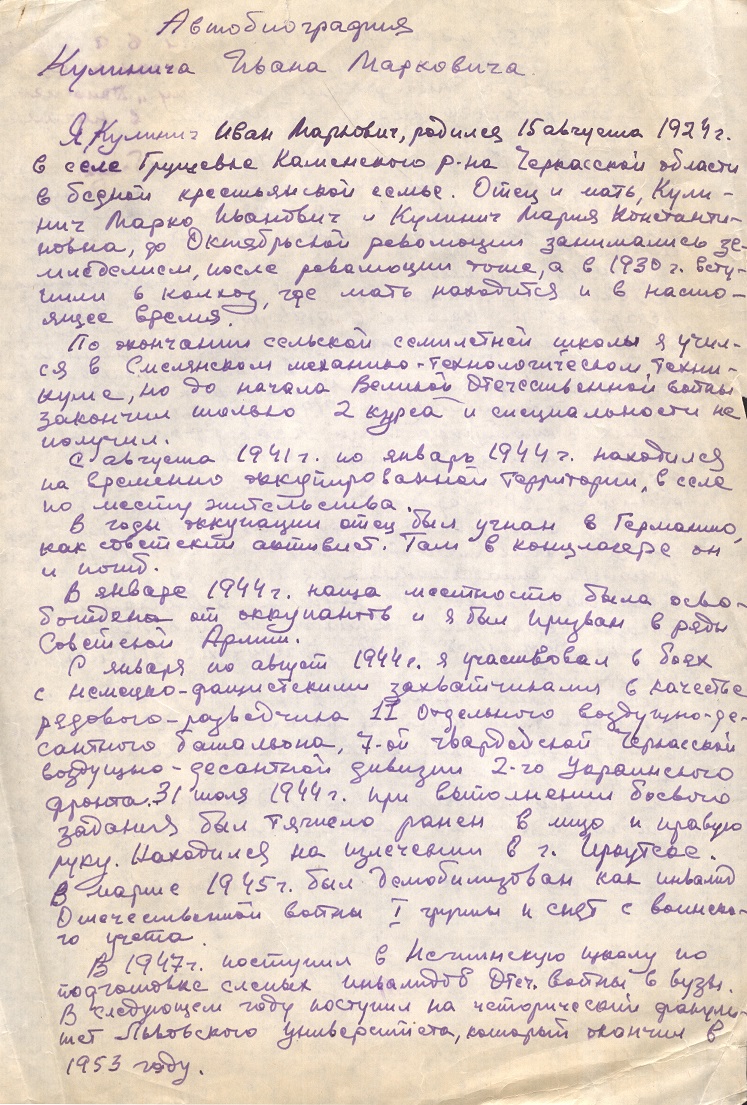 Автобиография
Кулинича Ивана Марковича.
Я Кулинич Иван Маркович, родился 15 августа 1924 г.
в селе Грушевке Каменского р-на Черкасской области
в бедной крестьянской семье. Отец и мать, Кули-
нич Марко Иванович и Кулинич Мария Константи-
новна, до Октябрьской революции занимались зе-
мледелием, после революции тоже, а в 1930 г. всту-
пили в колхоз, где мать находится и в насто-
ящее время.
По окончании сельской семилетней школы я учил-
ся в Смелянском механико-технологическом техни-
куме, но до начала Великой Отечественной войны
закончил только 2 курса и специальности не
получил.
С августа 1941 г. по январь 1944 г. находился
на временно оккупированной территории, в селе
по месту жительства.
В годы оккупации отец был угнан в Германию,
как советский активист. Там в концлагере он
и погиб.
В январе 1944 г. наша местность была осво-
бождена от оккупантов и я был призван в ряды
Советской Армии.
С января по август 1944 г. я участвовал в боях
с немецко-фашистскими захватчиками в качестве
рядового-разведчика II Отдельного воздушно-де-
сантного батальона, 7-ой гвардейской Черкасской
воздушно-десантной дивизии 2-го Украинского
фронта. 31 июля 1944 г. при выполнении боевого
задания был тяжело ранен в лицо и правую
руку. Находился на излечении в г. Иркутске.
В марте 1945 г. был демобилизован как инвалид
Отечественной войны I группы и снят с воинско-
го учета.
В 1947 г. поступил в Нежинскую школу по
подготовке слепых инвалидов Отеч. войны в вузы.
В следующем году поступил на исторический факуль-
тет Львовского университета, который окончил в
1953 году.